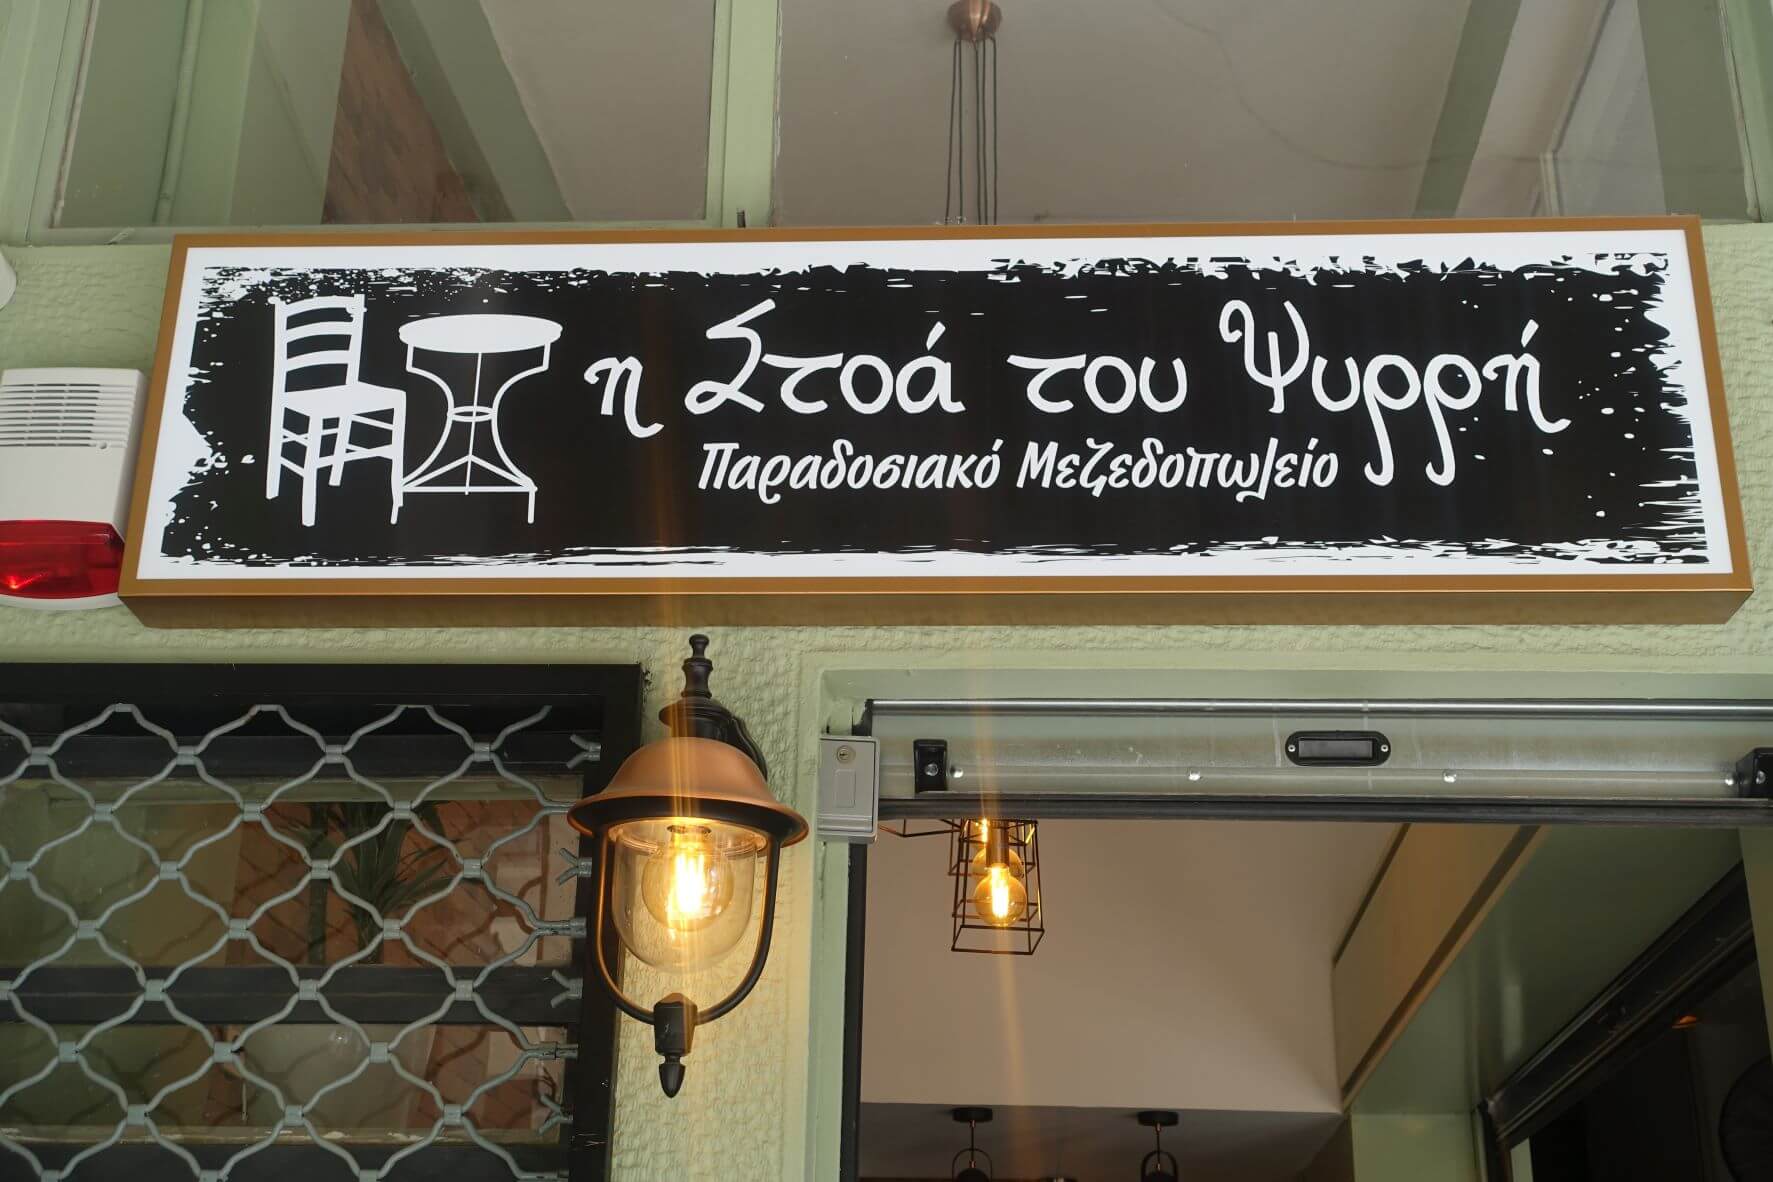 η Στοά του Ψυρρή
Παραδοσιακό Μεζεδοπωλείο